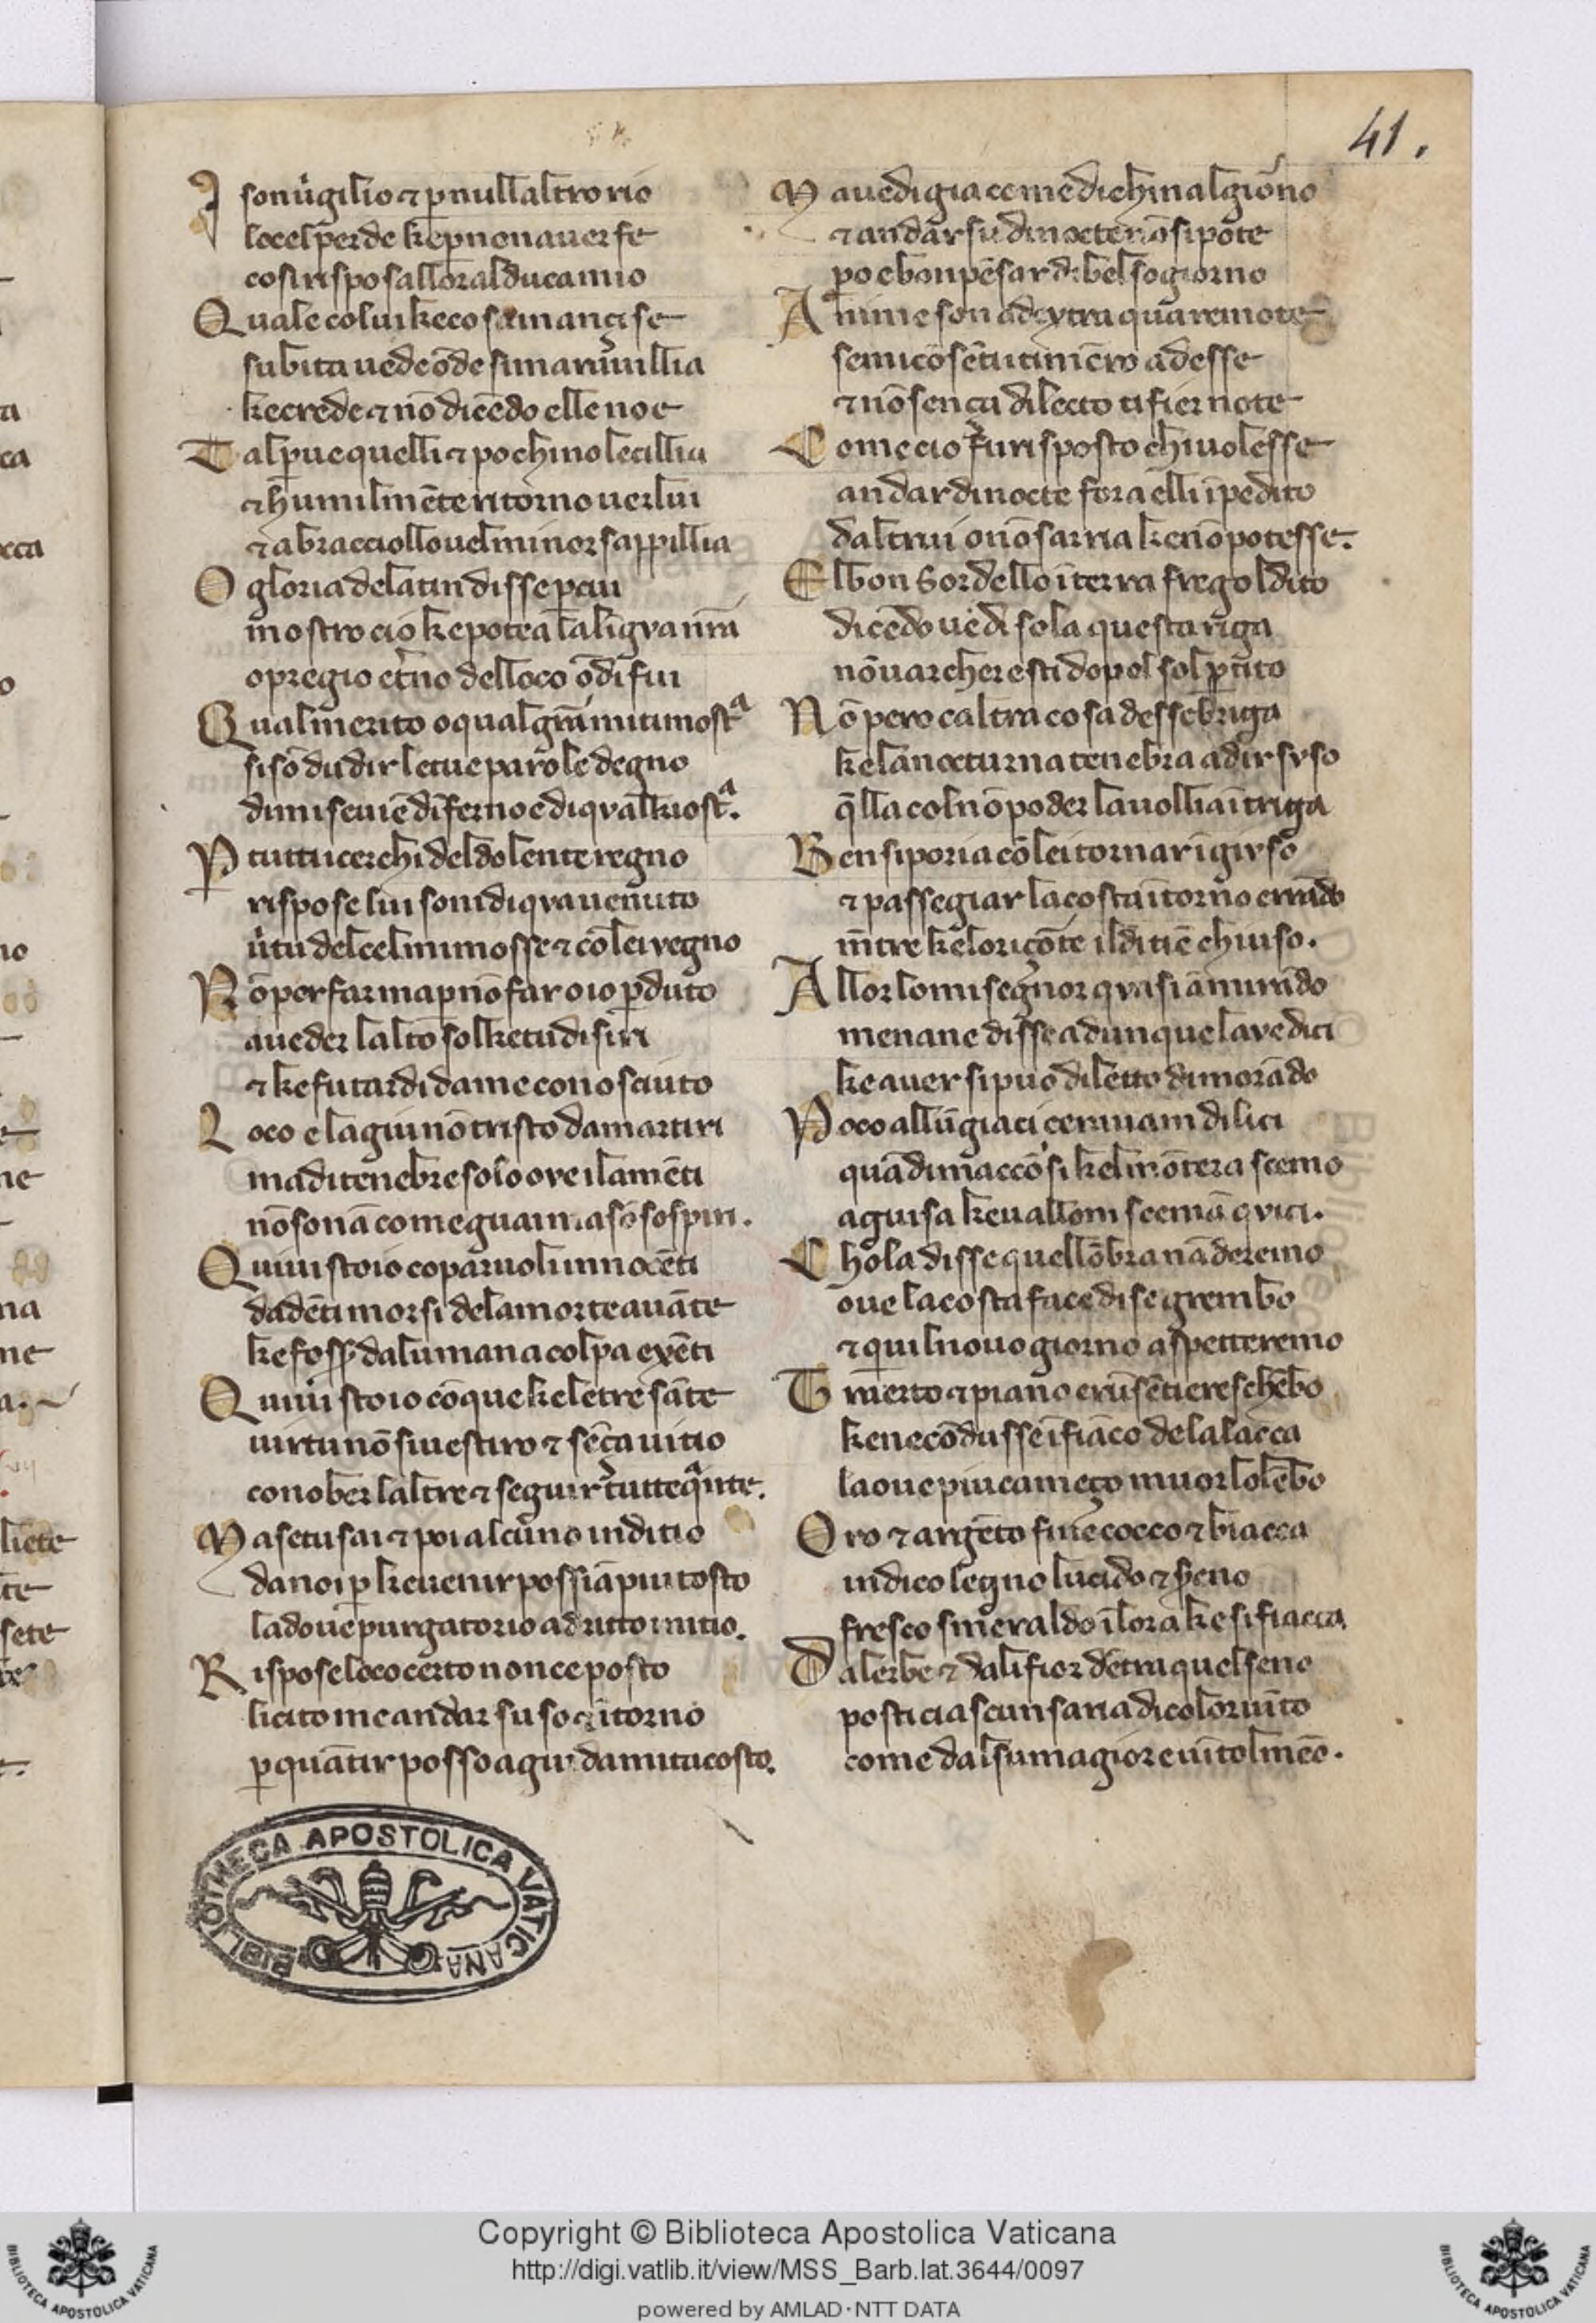 41.
I son v̓gilio ⁊ p null altro rio
lo cel perde ke p non aver fe
cosi rispos allora l duca mio
Quale colui ke cosa inançi se
subita vede ōde si maraviллia
ke crede ⁊ nō dicēdo ell e no e
Tal parve quelli ⁊ po chino le cillia
⁊ humilmēte ritorno ver lui
⁊ abracciollo u el minor s appillia
O gloria de latin disse p cui
mostro cio ke potea la ligva nr̄a
o pregio et̓no del loco ōd i fui
Qual merito o qual grā mi ti mostᵃ
s i sō d udir le tue parole degno
dimi se viē d īferno e di qval kiostᵃ.
P tutti i cerchi del dolente regno
rispose lui son i di qva venuto
v̓tu del cel mi mosse ⁊ cō lei vegno
Nō per far ma p nō far o io pduto
a veder l alto sol ke tu disiri
⁊ ke fu tardi da me conosciuto
Loco e la giu nō tristo da martiri
ma di tenebre solo ove i lamēti
nō sonā come guai ma sō sospiri.
Quivi sto io co parvoli innocēti
da dēti morsi de la morte avāte
ke fosser da l umana colpa exēti
Quivi sto io cō que ke le tre sāte
virtu nō si vestiro ⁊ sēça vitio
conober l altre ⁊ seguir tutte qᵃnte.
Ma se tu sai ⁊ poi alcuno inditio
da noi p ke venir possiā piu tosto
la dove purgatorio a dritto initio.
Rispose loco certo non c e posto
licito m e andar suso ⁊ itorno
p quāt ir posso a guida mi t acosto.
Ma vedi gia come dichina l giorno
⁊ andar su di nocte nō si pote
po e bon pēsar di bel sogiorno
Anime son a dextra qua remote
se mi cōsēti ti merro ad esse
⁊ nō sença dilecto ti fier note
Come cio fu risposto chi volesse
andar di nocte fora elli īpedito
d altrui o nō sarria ke nō potesse.
E l bon Sordello ī terra frego l dito
dicēdo vedi sola questa riga
nō varcheresti dopo l sol ptito
Nō pero c altra cosa desse briga
ke la nocturna tenebra ad ir svso
q̄lla col nō poder la vollia ītriga
Ben si poria cō lei tornar ī givso
⁊ passegiar la costa ītorno errādo
m̄tre ke l oriçōte il di tiē chiuso.
Allor lo mi segnor qvasi āmirādo
menane disse adunque la ve dici
ke aver si puo diletto dimorādo
Poco allūgiati c eravam di lici
quād i m accorsi ke l mōte era scemo
a guisa ke vallom scemā qvici.
Chola disse quell ōbra n āderemo
ove la costa face di se grembo
⁊ qui l novo giorno aspetteremo
Tra erto ⁊ piano er ū sētiere schēbo
ke ne cōdusse ī fiāco de la lacca
la ove piu c a meço muor lo lēbo
Oro ⁊ argēto fine cocco ⁊ biacca
indico legno lucido ⁊ s̓eno
fresco smeraldo ī l ora ke si fiacca
Da l erbe ⁊ da li fior dētr a quel seno
posti ciascun saria di color vīto
come dal su magiore vīto l meo.
BIBLIOTHECA APOSTOLICA VATICANA
Copyright © Biblioteca Apostolica Vaticana
http://digi.vatlib.it/view/MSS_Barb.lat.3644/0097
powered by AMLAD·NTT DATA
BIBLIOTECA APOSTOLICA VATICANA
BIBLIOTECA APOSTOLICA VATICANA